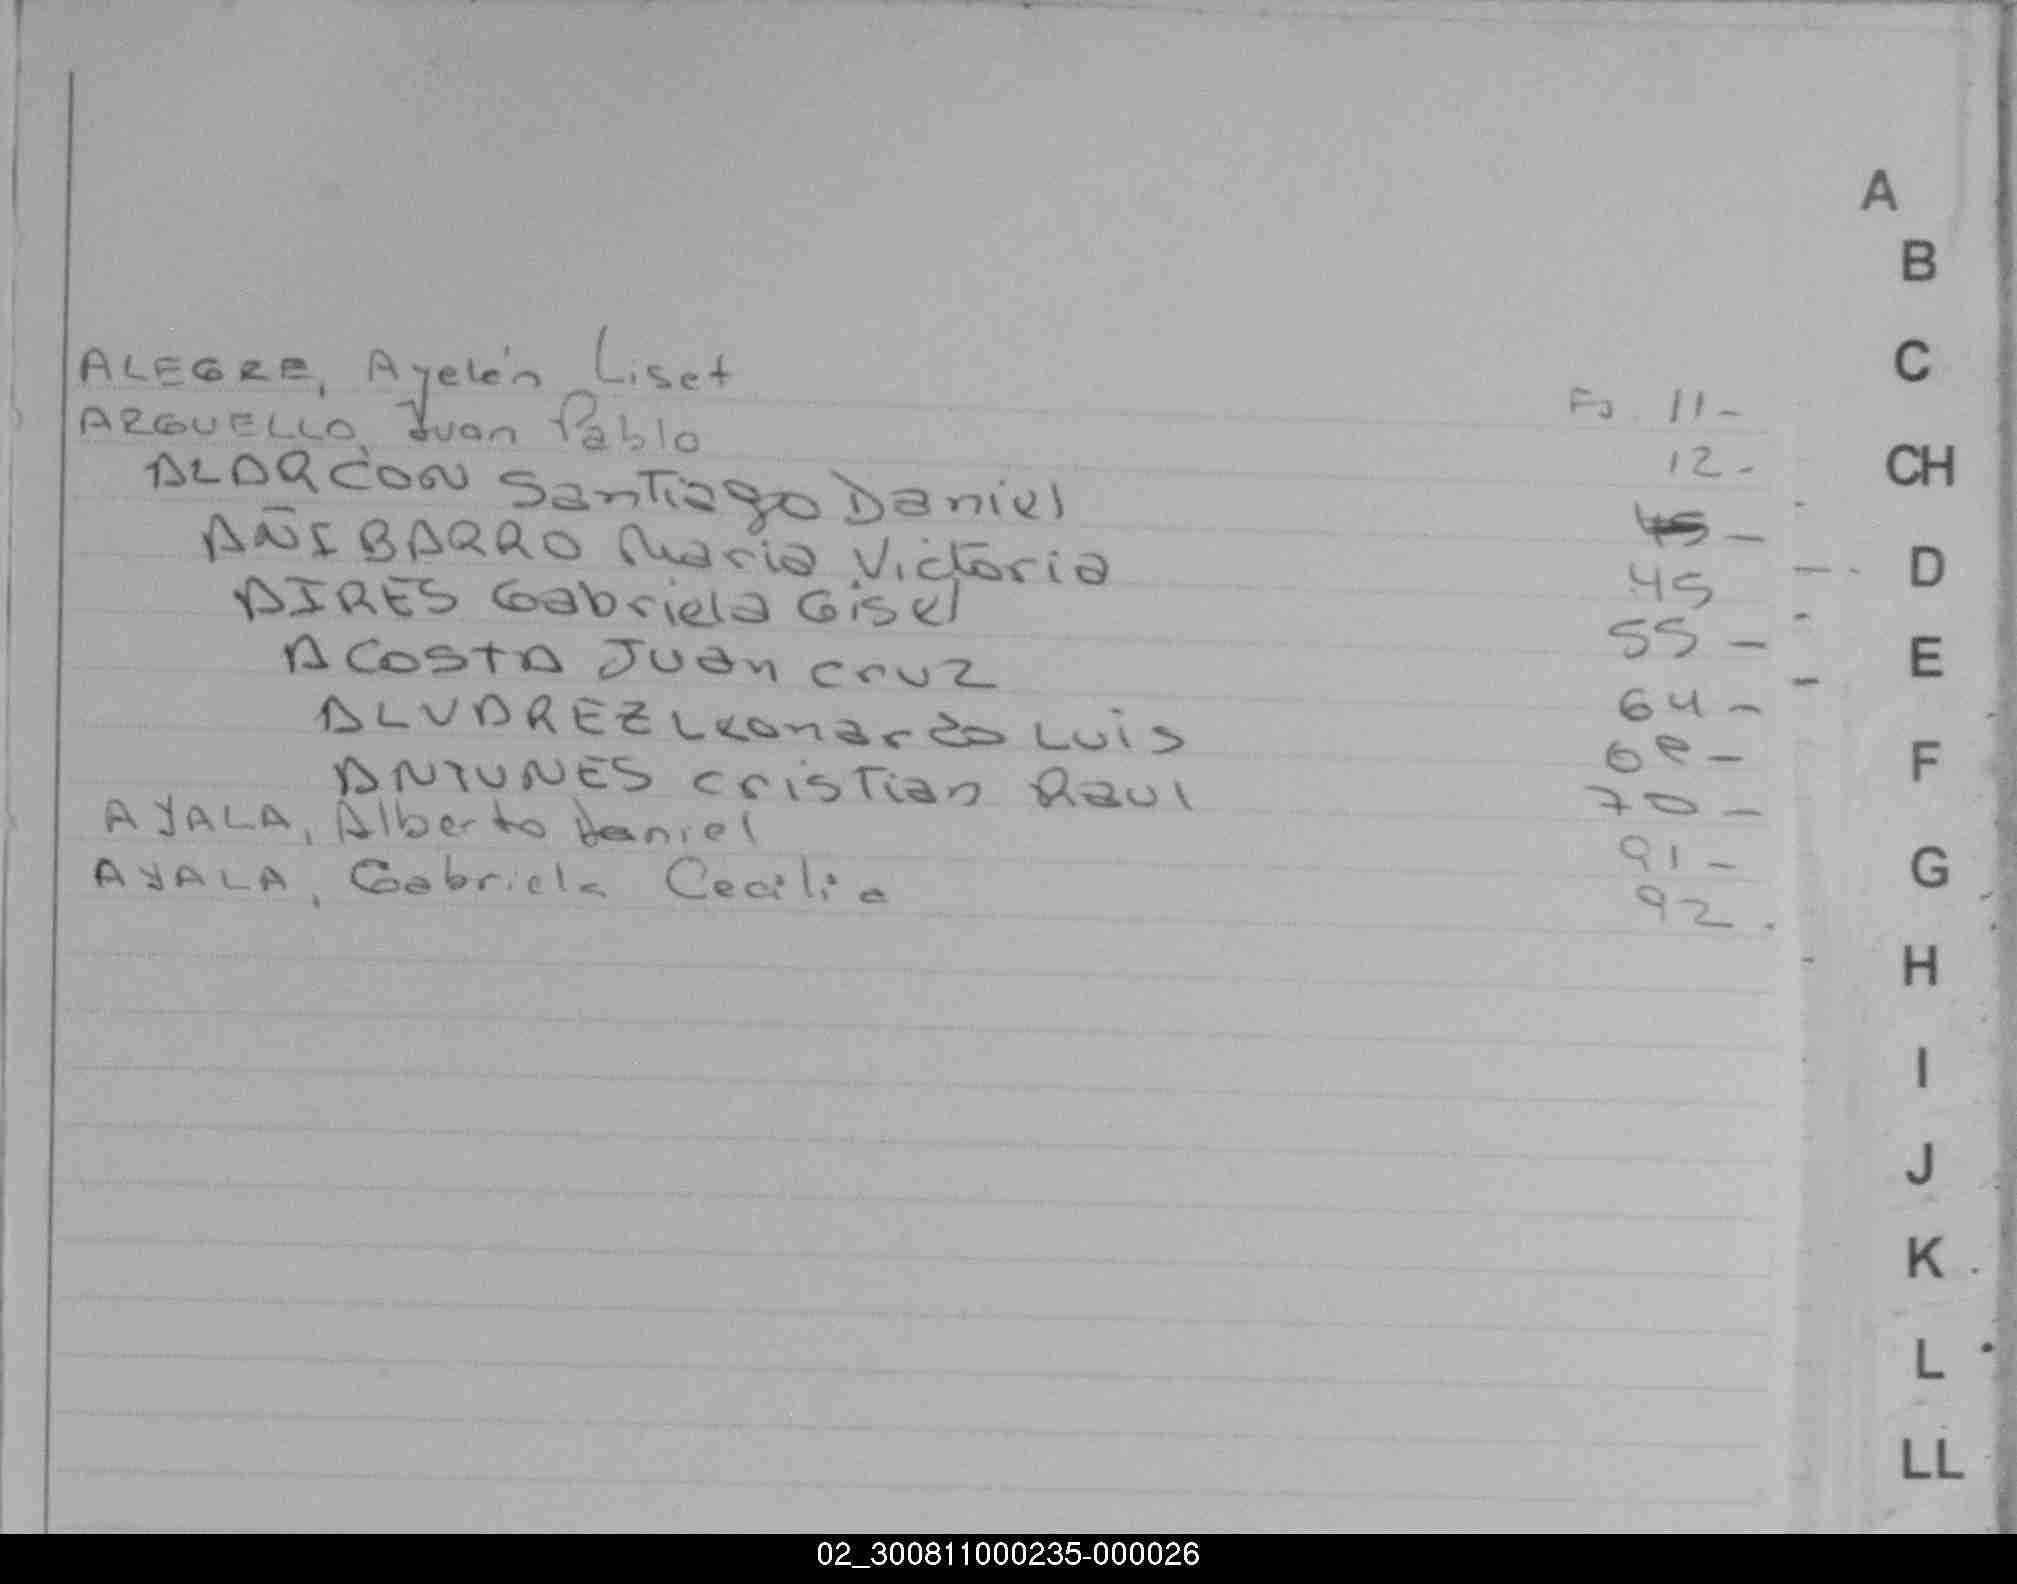 ALEGRE, Ayelén Liset Fs. 11-
ARGUELLO, Juan Pablo 12-
ALARCON Santiago Daniel -
AÑIBARRO Maria Victoria 45
AIRES Gabriela Gisel 55 -
ACOSTA Juan Cruz 64 -
ALVAREZ Leonardo Luis -
ANTUNES Cristian Raul 70 -
AYALA, Alberto Daniel 91 -
AYALA, Gabriela Cecilia 92.
A
B
C
CH
D
E
F
G
H
I
J
K
L
LL
02_300811000235-000026